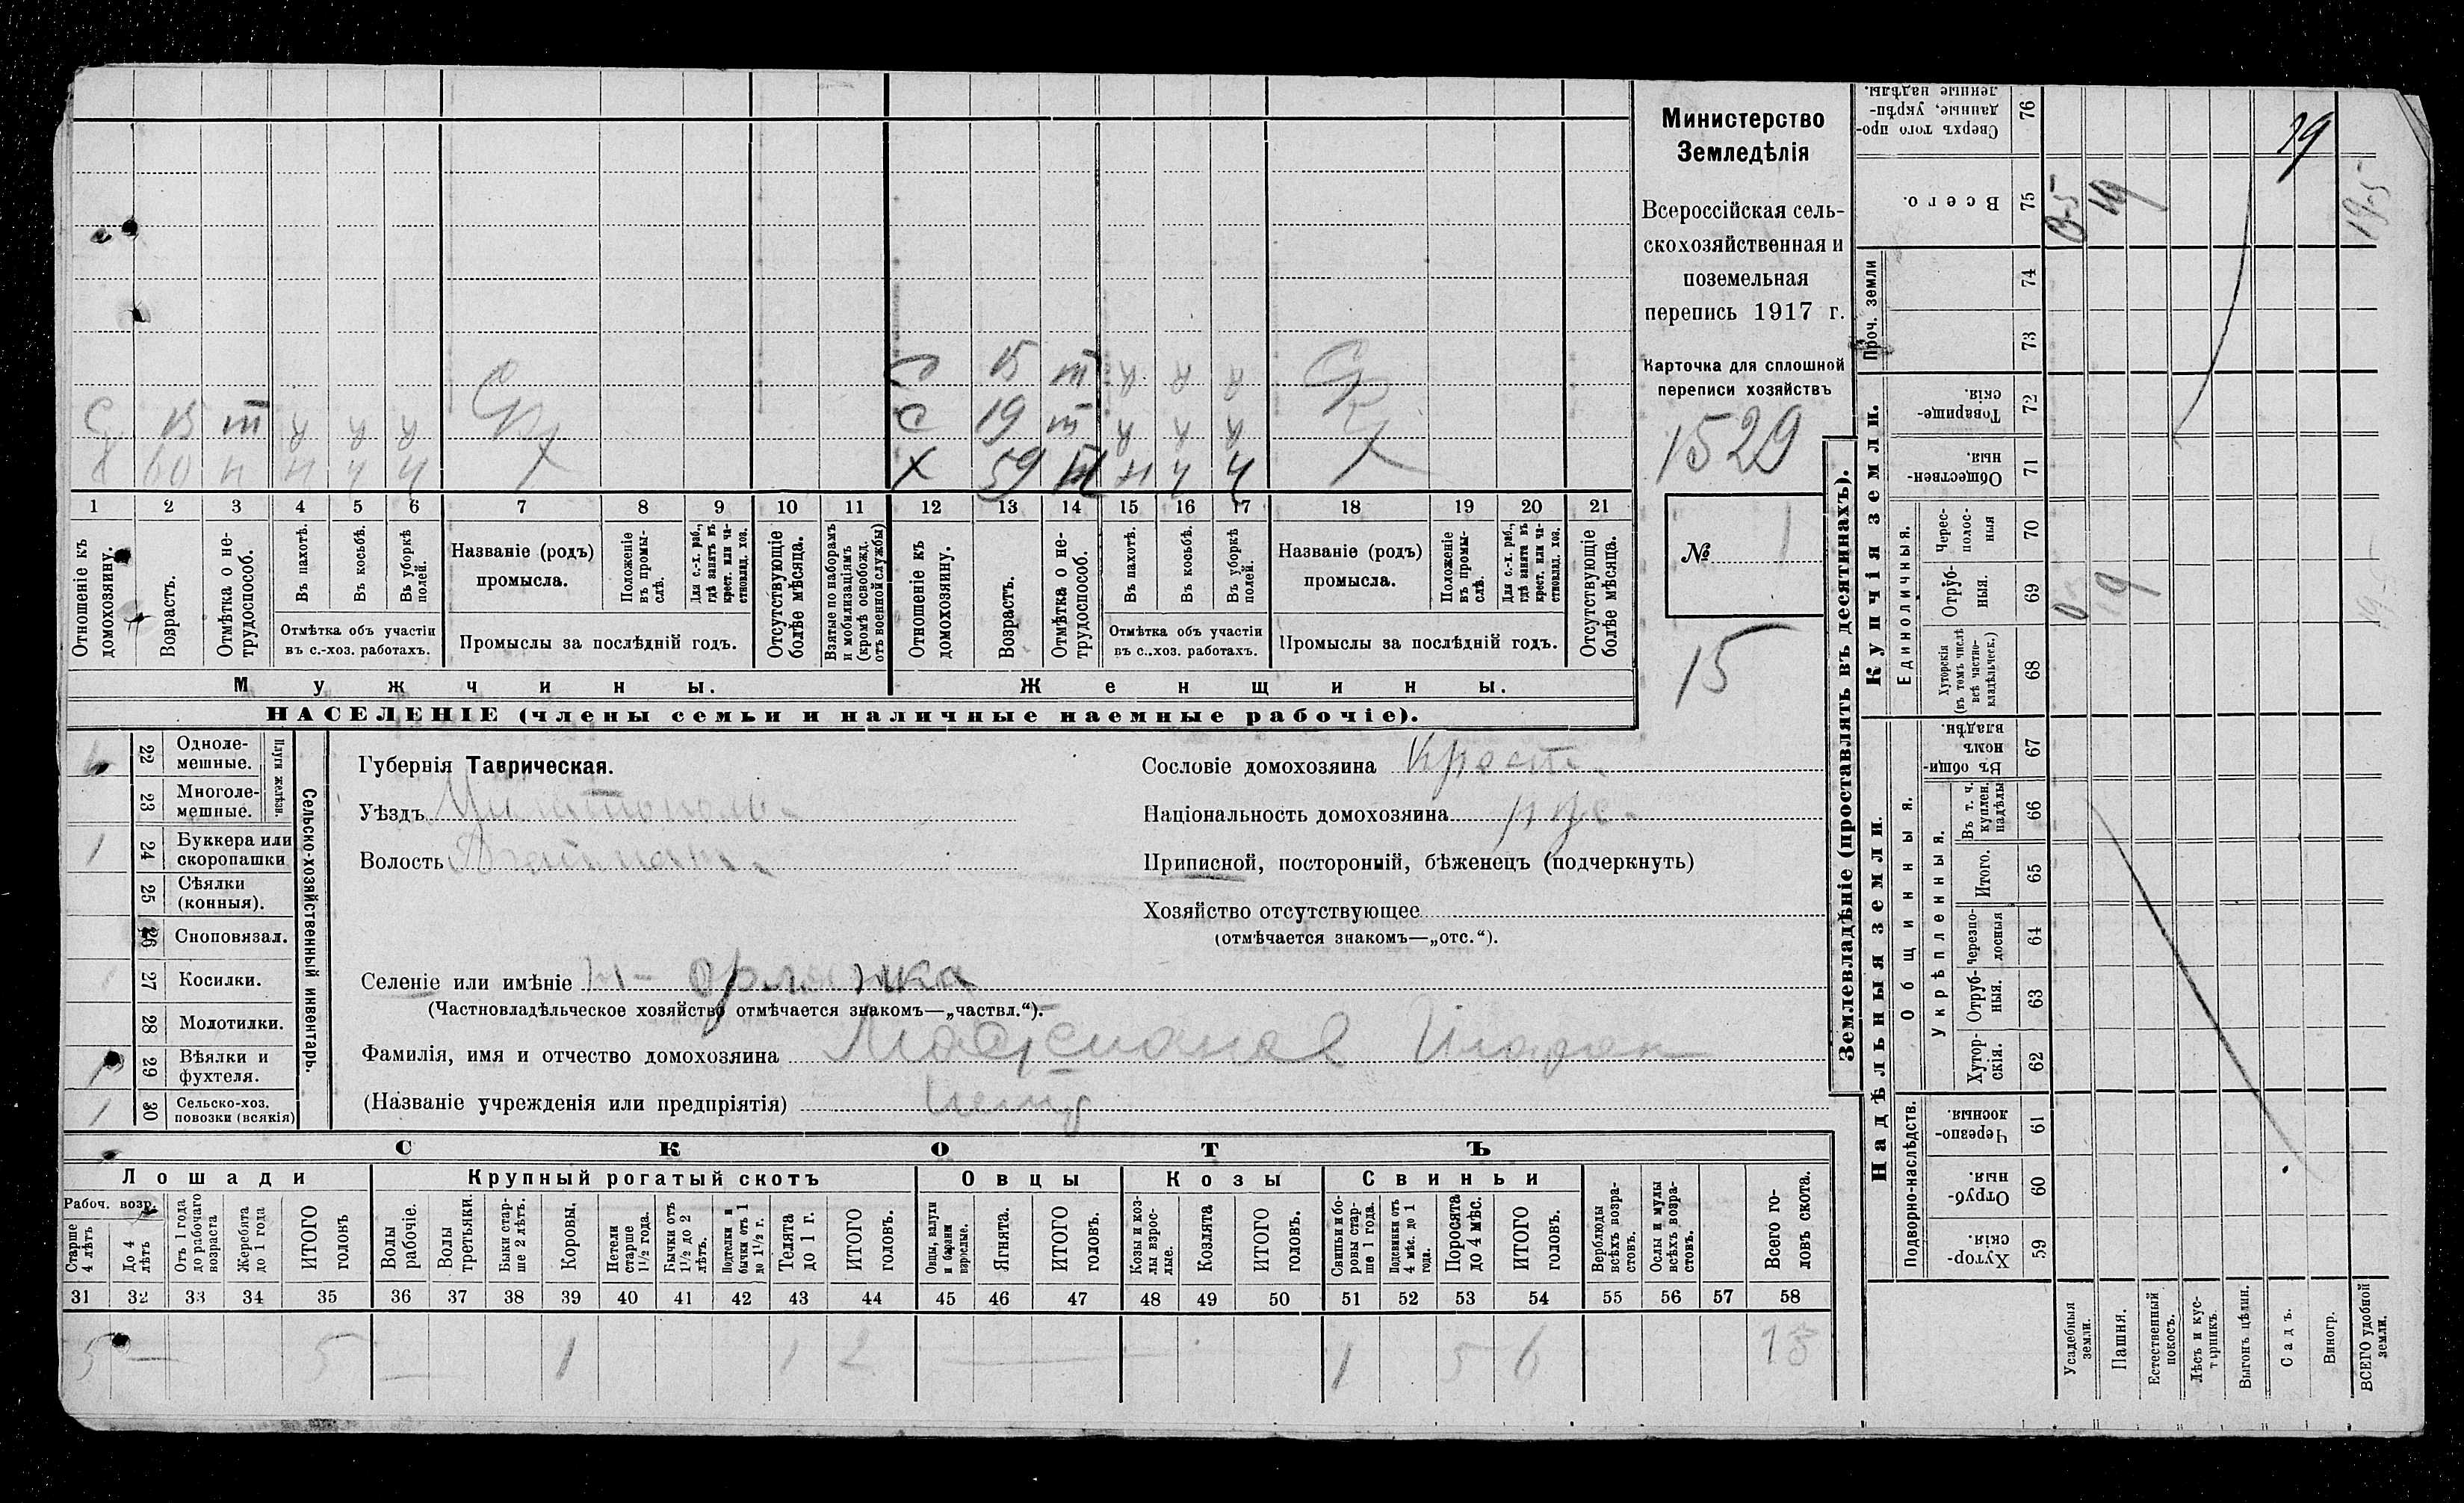 Министерство
Земледѣлія
Всероссійская сель-
скохозяйственная и
поземельная
перепись 1917 г.
Карточка для сплошной
переписи хозяйствъ
1529
№ 1
15
С 15 т
С 15 т я я я Ср С 19 т я я я Ср
Х 60 н н ч ч Х Х 59 н ч ч Х
1 2 3 4 5 6 7 8 9 10 11 12 13 14 15 16 17 18 19 20 21
Отношеніе къ домохозяину.
Возрастъ.
Отмѣтка о не-трудоспособ.
Въ пахотѣ.
Въ косьбѣ.
Въ уборкѣ полей.
Отмѣтка объ участіи
въ с.-хоз. работахъ.
Названіе (родъ)
промысла.
Положеніе въ промы-слѣ.
Для с.-х. раб., гдѣ занятъ въ крест. или ча-стновлад. хоз.
Промыслы за послѣдній годъ.
Отсутствующіе болѣе мѣсяца.
Взятые по наборамъ и мобилизаціямъ (кромѣ освобожд. отъ военной службы)
Отношеніе къ домохозяину.
Возрастъ.
Отмѣтка о не-трудоспособ.
Въ пахотѣ.
Въ косьбѣ.
Въ уборкѣ полей.
Отмѣтка объ участіи
въ с.-хоз. работахъ.
Названіе (родъ)
промысла.
Положеніе въ промы-слѣ.
Для с.-х. раб., гдѣ занята въ крест. или ча-стновлад. хоз.
Промыслы за послѣдній годъ.
Отсутствующіе болѣе мѣсяца.
Мужчины. Женщины.
НАСЕЛЕНІЕ (члены семьи и наличные наемные рабочіе).
22 Одноле-мешные.
Плуги желѣзн.
23 Многоле-мешные.
1 24 Буккера или скоропашки
25 Сѣялки (конныя).
26 Сноповязал.
1 27 Косилки.
28 Молотилки.
1 29 Вѣялки и фухтеля.
1 30 Сельско-хоз. повозки (всякія)
Сельско-хозяйственный инвентарь.
Губернія Таврическая.
Уѣздъ
Волость
Селеніе или имѣніе Орлянка
(Частновладѣльческое хозяйство отмѣчается знакомъ—„частвл.“).
Фамилія, имя и отчество домохозяина
(Названіе учрежденія или предпріятія)
Сословіе домохозяина Крест.
Національность домохозяина рус.
Приписной, посторонній, бѣженецъ (подчеркнуть)
Хозяйство отсутствующее
(отмѣчается знакомъ—„отс.“).
СКОТЪ
Лошади Крупный рогатый скотъ Овцы Козы Свиньи
Рабоч. возр.
Старше 4 лѣтъ
До 4 лѣтъ
Отъ 1 года до рабочаго возраста
Жеребята до 1 года
ИТОГО головъ
Волы рабочіе.
Волы третьяки.
Быки стар-ше 2 лѣтъ.
Коровы.
Нетели старше 1½ года.
Бычки отъ 1½ до 2 лѣтъ.
Подтелки и бычки отъ 1 до 1½ г.
Телята до 1 г.
ИТОГО головъ.
Овцы, валухи и бараны взрослые.
Ягнята.
ИТОГО головъ.
Козы и коз-лы взрос-лые.
Козлята
ИТОГО головъ.
Свиньи и бо-ровы стар-ше 1 года.
Подсвинки отъ 4 мѣс. до 1 года.
Поросята до 4 мѣс.
ИТОГО головъ.
Верблюды всѣхъ возра-стовъ.
Ослы и мулы всѣхъ возра-стовъ.
Всего го-ловъ скота.
31 32 33 34 35 36 37 38 39 40 41 42 43 44 45 46 47 48 49 50 51 52 53 54 55 56 57 58
5 — 5 — 1 1 2 — 1 5 6 13
Землевладѣніе (проставлять въ десятинахъ).
Сверхъ того про-данные, укрѣп-ленные надѣлы. 76
Всего. 75
Проч. земли 74 73
Купчія земли.
Товарище-скія. 72
Обществен-ныя. 71
Единоличныя.
Черес-полос-ныя 70
Отруб-ныя. 69
Хуторскія (въ томъ числѣ всѣ частно-владѣльческ.) 68
Надѣльныя земли.
Общинныя.
Въ общи-номъ владѣн. 67
Укрѣпленныя.
Въ т. ч. куплен. надѣлы 66
Итого. 65
Черезпо-лосныя 64
Отруб-ныя. 63
Хутор-скія. 62
Подворно-наслѣдств.
Черезпо-лосныя. 61
Отруб-ныя. 60
Хутор-скія. 59
Усадебныя земли.
Пашня.
Естественный покосъ.
Лѣсъ и кус-тарникъ.
Выгонъ цѣлин.
Садъ.
Виногр.
ВСЕГО удобной земли.
0-5 19 19-5
19
19